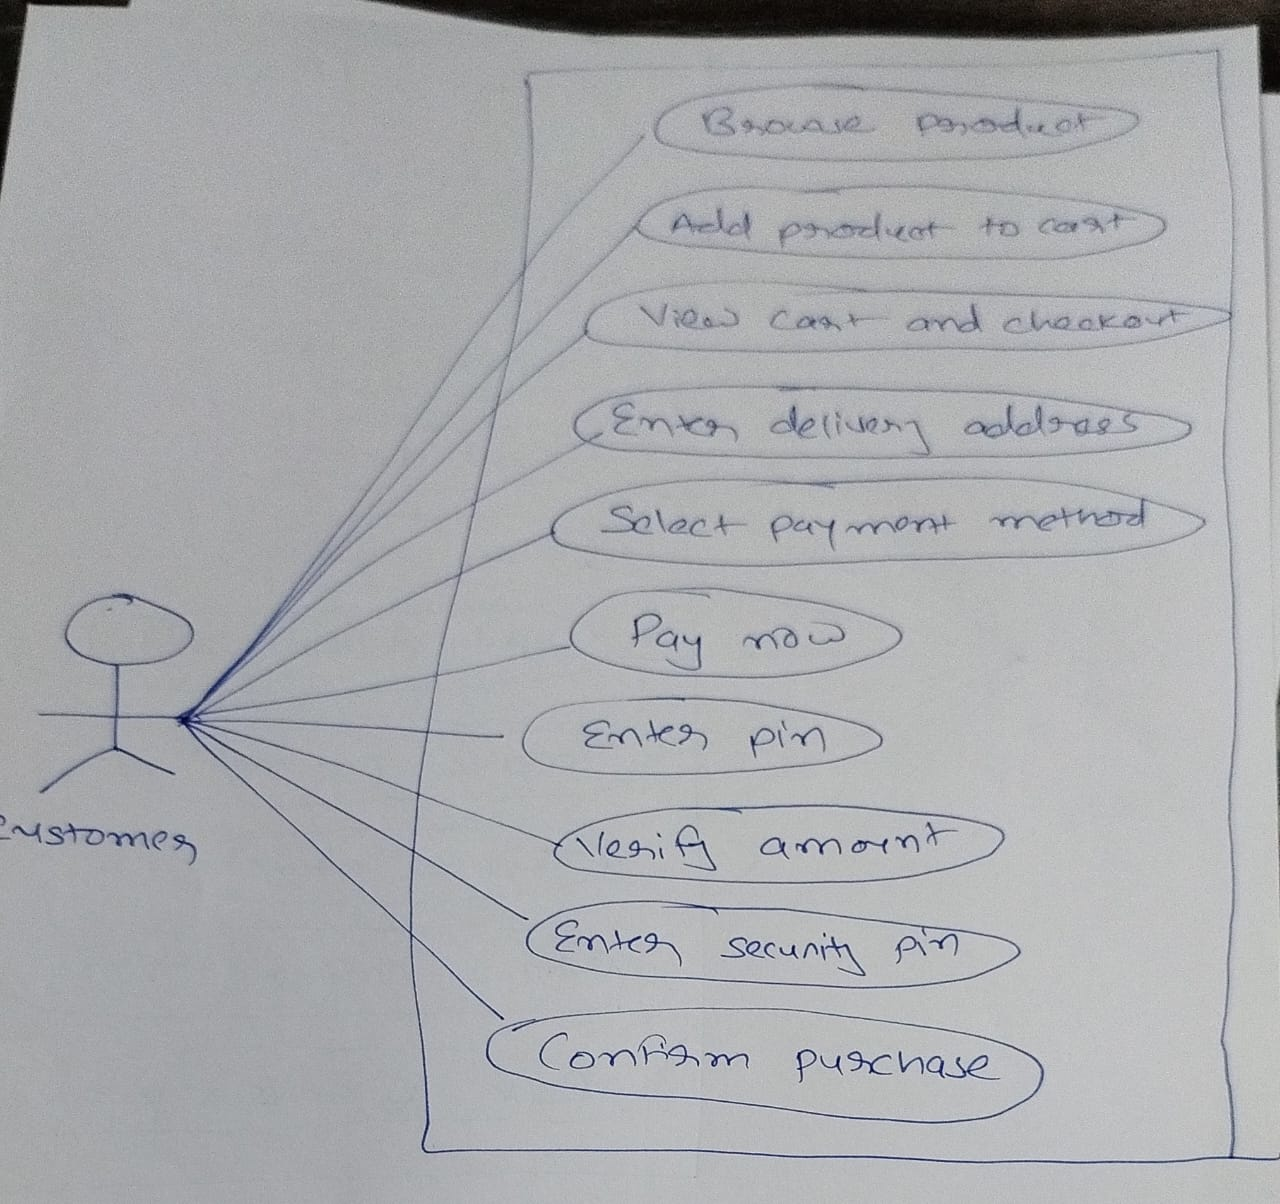 Browse product
Add product to cart
View cart and checkout
Enter delivery address
Select payment method
Pay now
Enter pin
Verify amount
Enter security pin
Confirm purchase
Customer